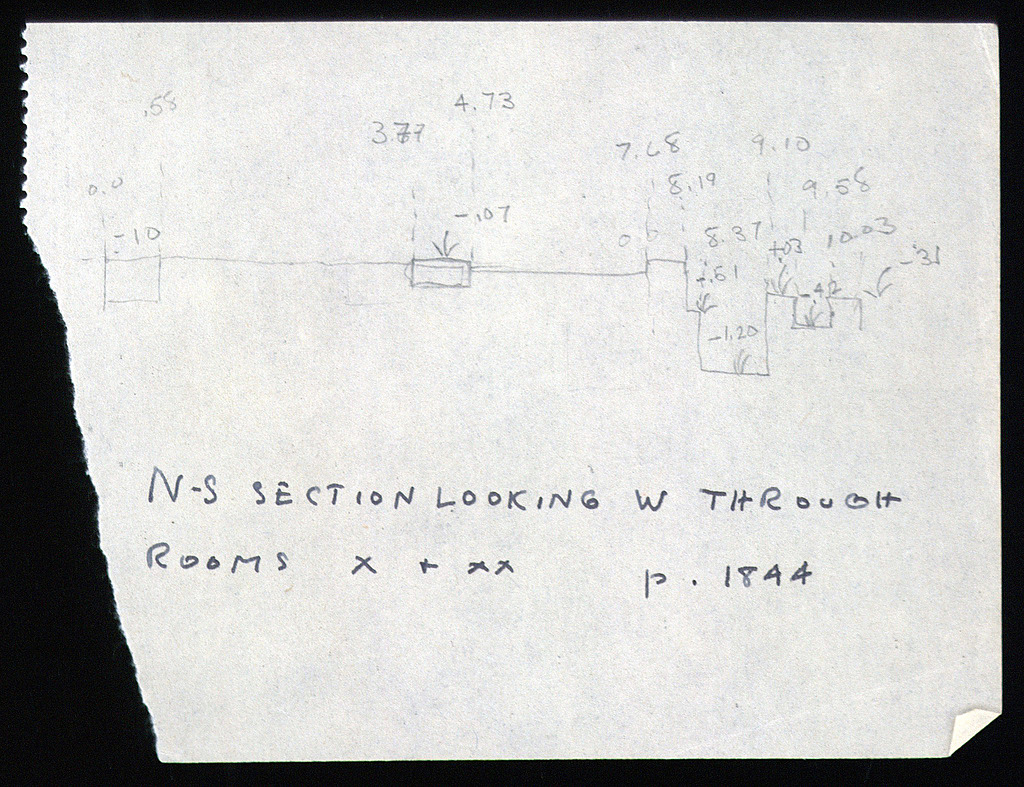 .58
4.73
7.68
9.10
0.0
8.19
9.58
-.07
-.10
8.37
10.03
-.31
-1.20
N-S SECTION LOOKING W THROUGH
ROOMS X + XX p. 1844